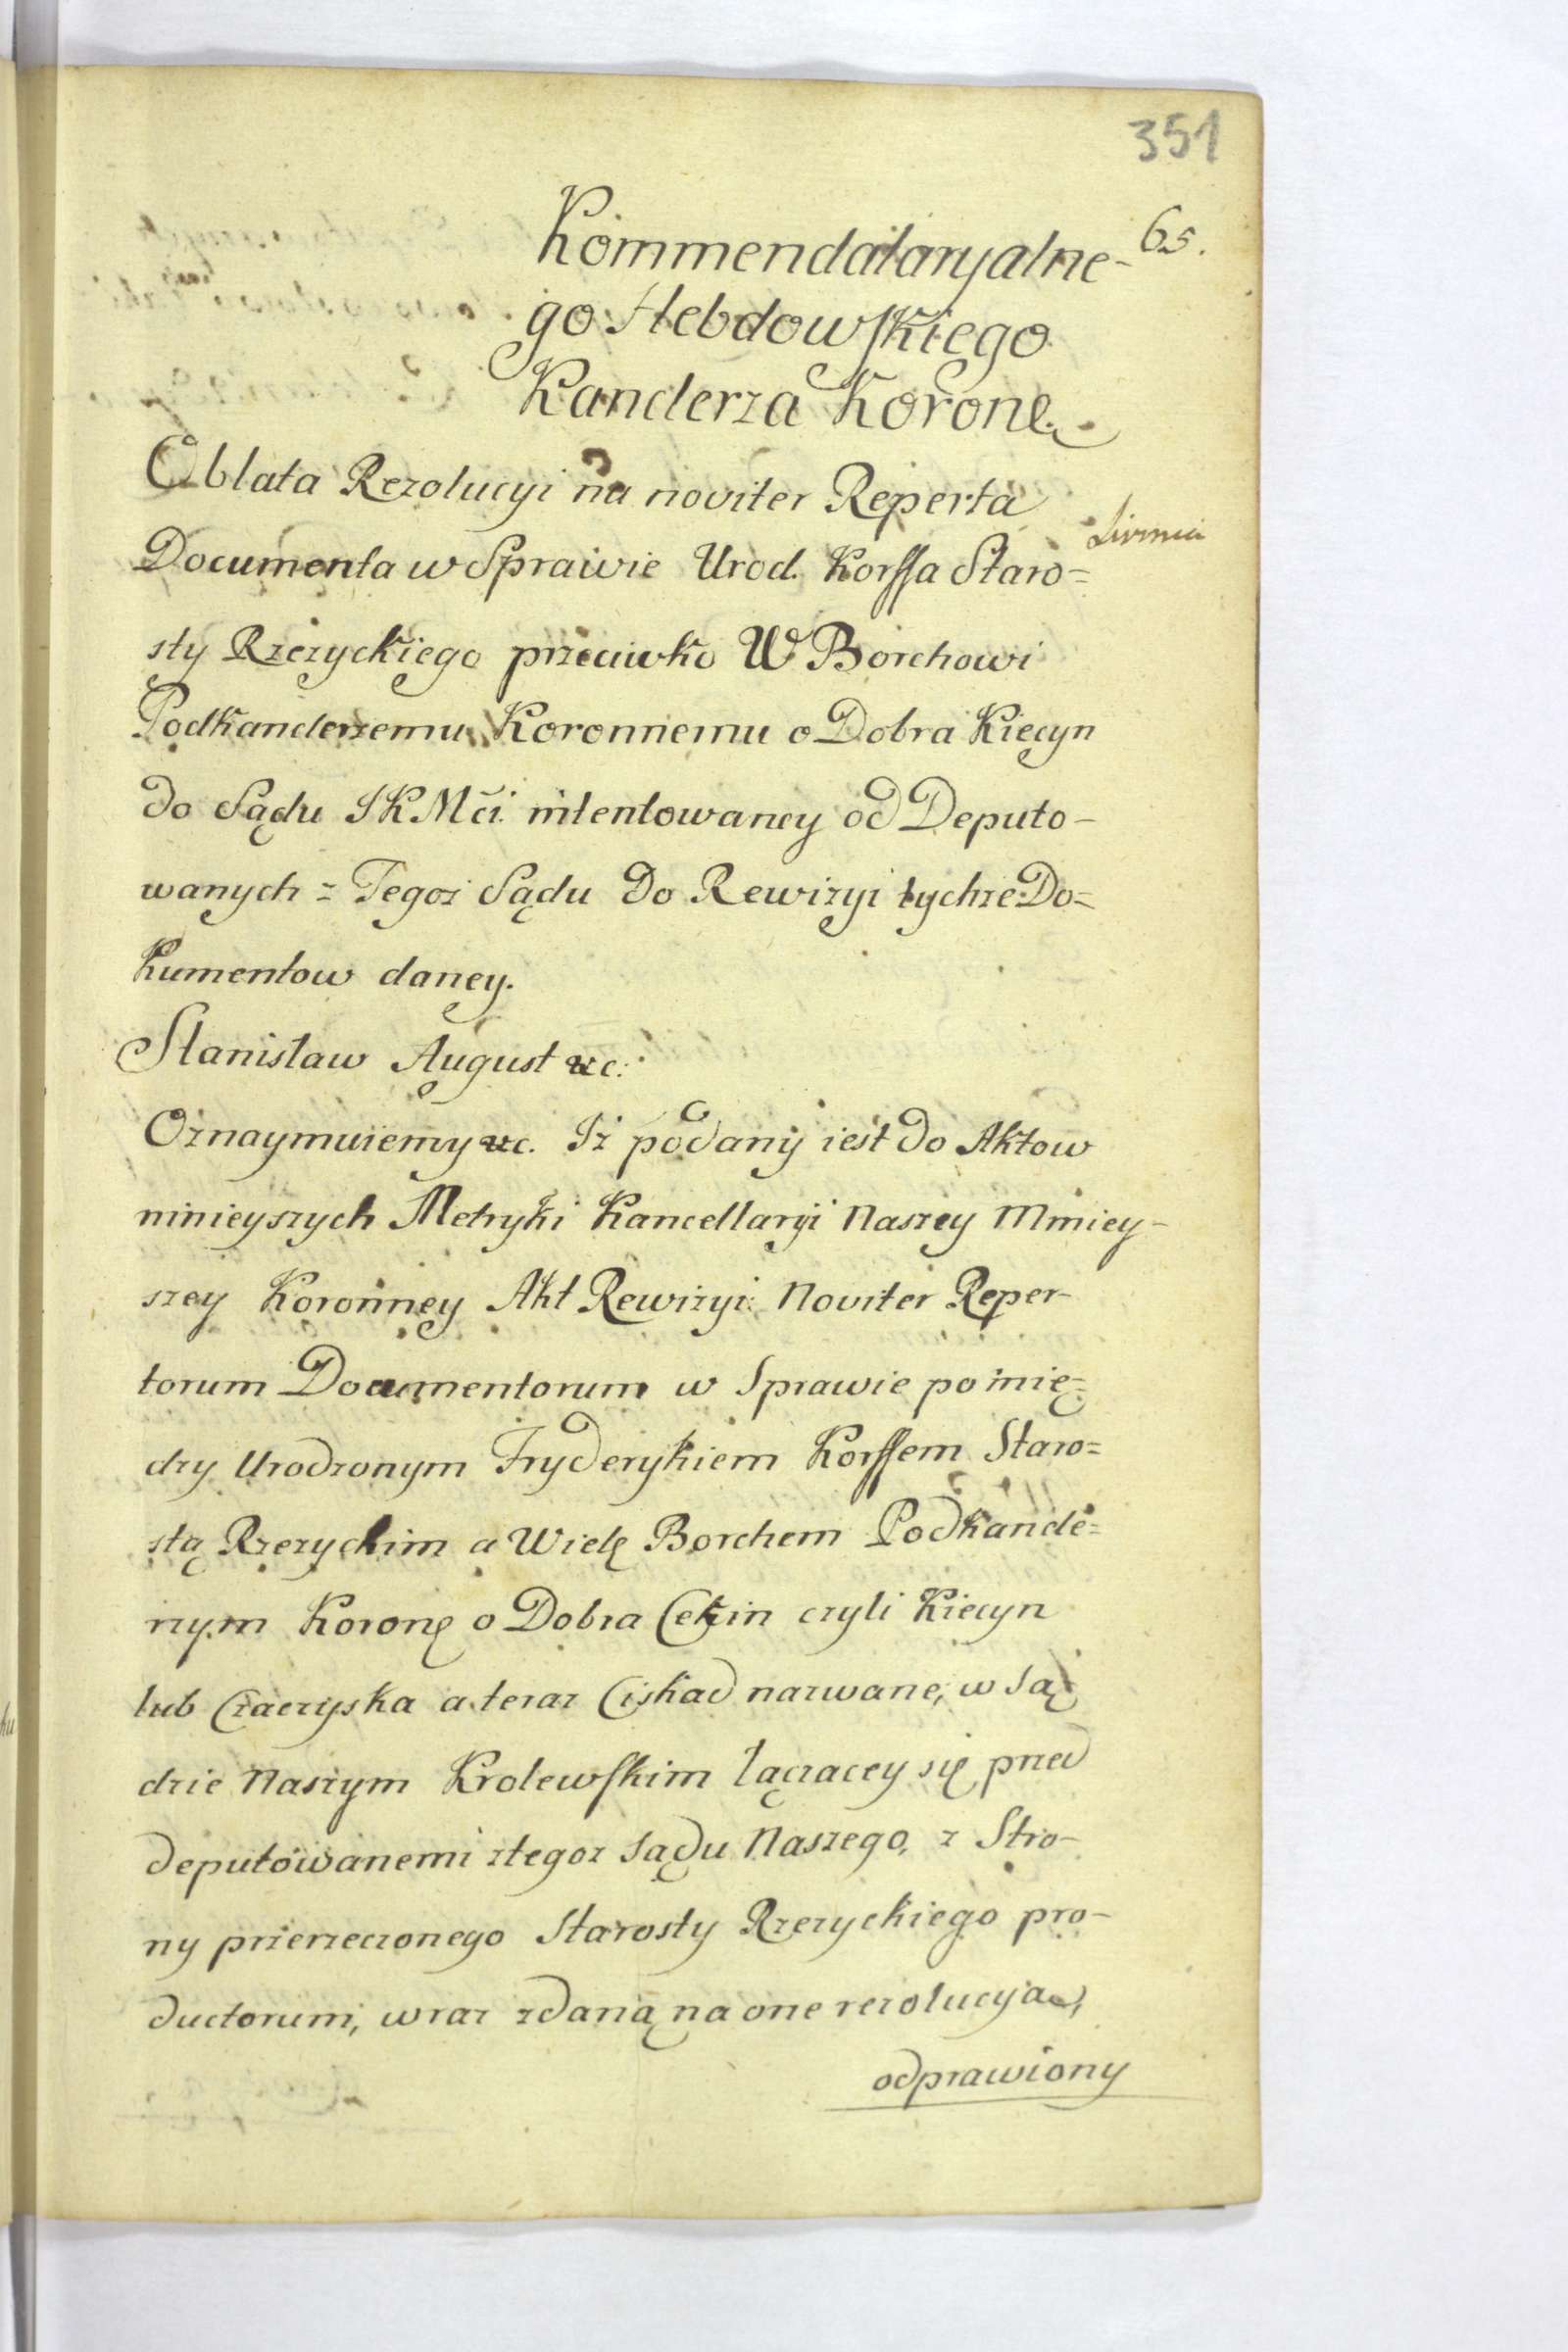 351
65.
Kommendataryalne-
go Hebdowskiego
Kanclerza Koronę.
Oblata Rezolucyi na noviter Reperta
Documenta w Sprawie Urod. Korffa Staro=
sty Rzezyckiego przeciwko W Borchowi
Podkanclerzemu Koronnemu o Dobra Kiecyn
do Sądu JKMći. intentowaney od Deputo-
wanych z Tegoż Sądu do Rewizyi tychże Do=
kumentow daney.
Stanisław August &c:
Oznaymuiemy &c. Iż podany iest do Aktow
ninieyszych Metryki Kancellaryi Naszey Mniey-
szey Koronney Akt Rewizyi Noviter Reper-
torum Documentorum w Sprawie pomię=
dzy Urodzonym Fryderykiem Korffem Staro=
stą Rzezyckim a Wielę Borchem Podkancle=
rzym Koronę o Dobra Cekin czyli Kiecyn
lub Czaczyska a teraz Ciskad nazwane, w Są
dzie Naszym Krolewskim łączącey się przed
deputowanemi z tegoż Sądu Naszego, z Stro-
ny przerzeczonego Starosty Rzezyckiego pro-
ductorum, wraz z daną na one rezolucyą,
odprawiony